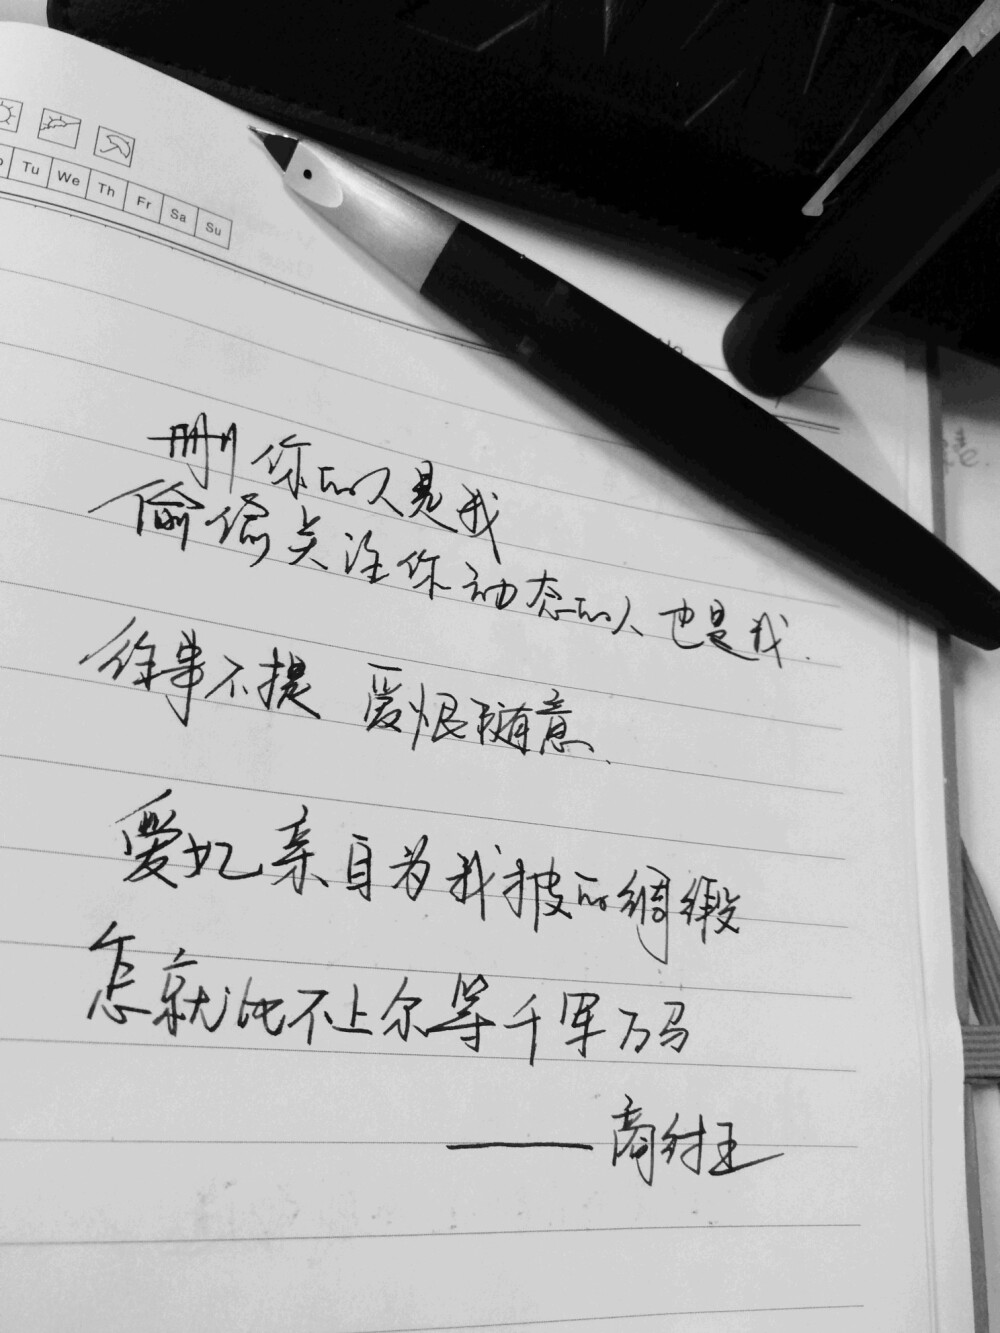 Tu We Th Fr Sa Su
No
删你的人是我
偷偷关注你动态的人也是我.
往事不提 爱恨随意、
爱妃亲自为我披的绸缎
怎就比不上尔等千军万马
——商纣王